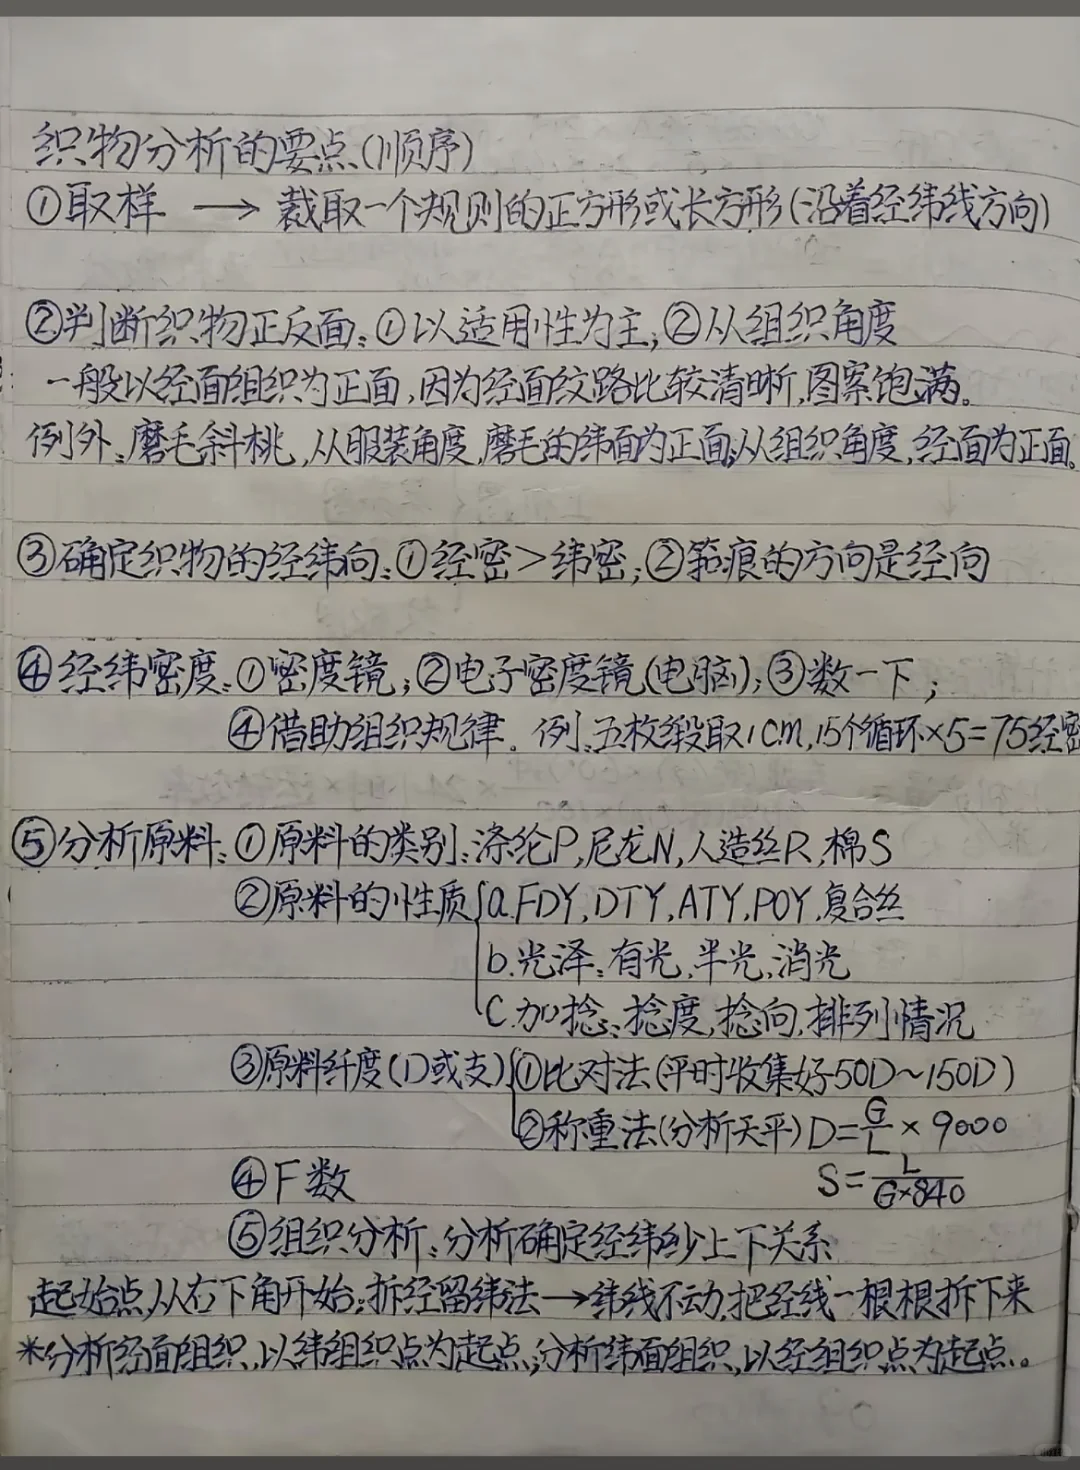 织物分析的要点(顺序)
①取样 → 裁取一个规则的正方形或长方形(沿着经纬线方向)
②判断织物正反面:①以适用性为主;②从组织角度
一般以经面组织为正面,因为经面纹路比较清晰,图案饱满。
例外:磨毛斜桃,从服装角度,磨毛的纬面为正面;从组织角度,经面为正面。
③确定织物的经纬向:①经密>纬密;②筘痕的方向是经向
④经纬密度:①密度镜;②电子密度镜(电脑);③数一下;
④借助组织规律。例:五枚缎取1cm,15个循环×5=75经密
⑤分析原料:①原料的类别:涤纶P,尼龙N,人造丝R,棉S
②原料的性质{a.FDY,DTY,ATY,POY,复合丝
b.光泽:有光,半光,消光
C.加捻:捻度,捻向,排列情况
③原料纤度(D或支){①比对法(平时收集好50D~150D)
②称重法(分析天平)D=G/L×9000
④F数 S=L/G×840
⑤组织分析:分析确定经纬纱上下关系
起始点,从右下角开始:拆经留纬法→纬线不动,把经线一根根拆下来
*分析经面组织,以纬组织点为起点;分析纬面组织,以经组织点为起点。